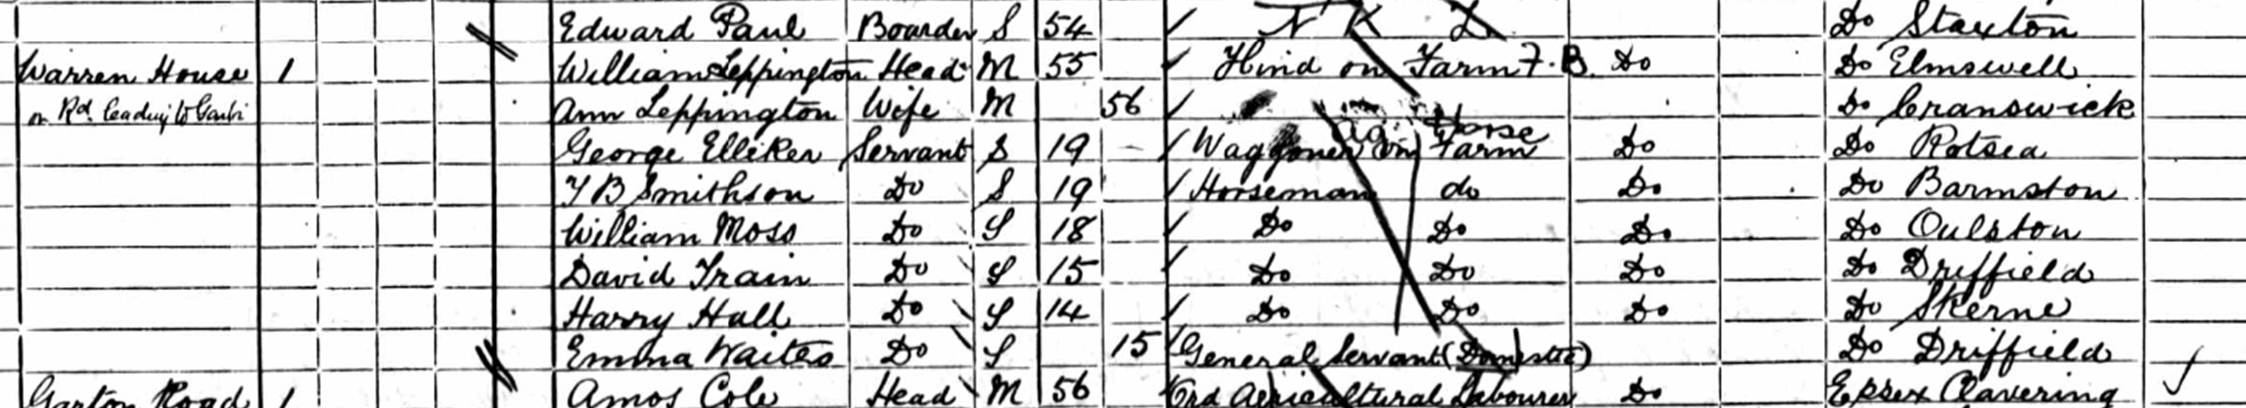 Edward Paul Boarder S 54 N K Do Staxton
Warren House 1 William Leppington Head M 55 Hind on Farm F.B. Do Do Elmswell
on Rd. leading to Ann Leppington Wife M 56 Do Cranswick
Ag. Horse
George Elleker Servant S 19 Waggoner on Farm Do Do Rotsea
T B Smithson Do S 19 Horseman do Do Do Barmston
William Moss Do S 18 Do Do Do Do Oulston
David Train Do S 15 Do Do Do Do Driffield
Harry Hall Do S 14 Do Do Do Do Skerne
Emma Waites Do S 15 General Servant (Domestic) Do Driffield
Garton Road 1 Amos Cole Head M 56 Ord Agricultural Labourer Do Essex Clavering